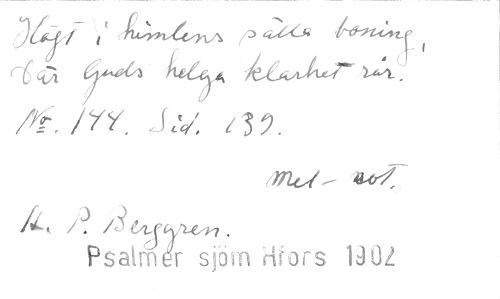 Högt i himlens sälla boning,
Där Guds helga klarhet rår.
No. 144. Sid. 139.
Mel-not.
H. P. Berggren.
Psalmer sjöm Hfors 1902